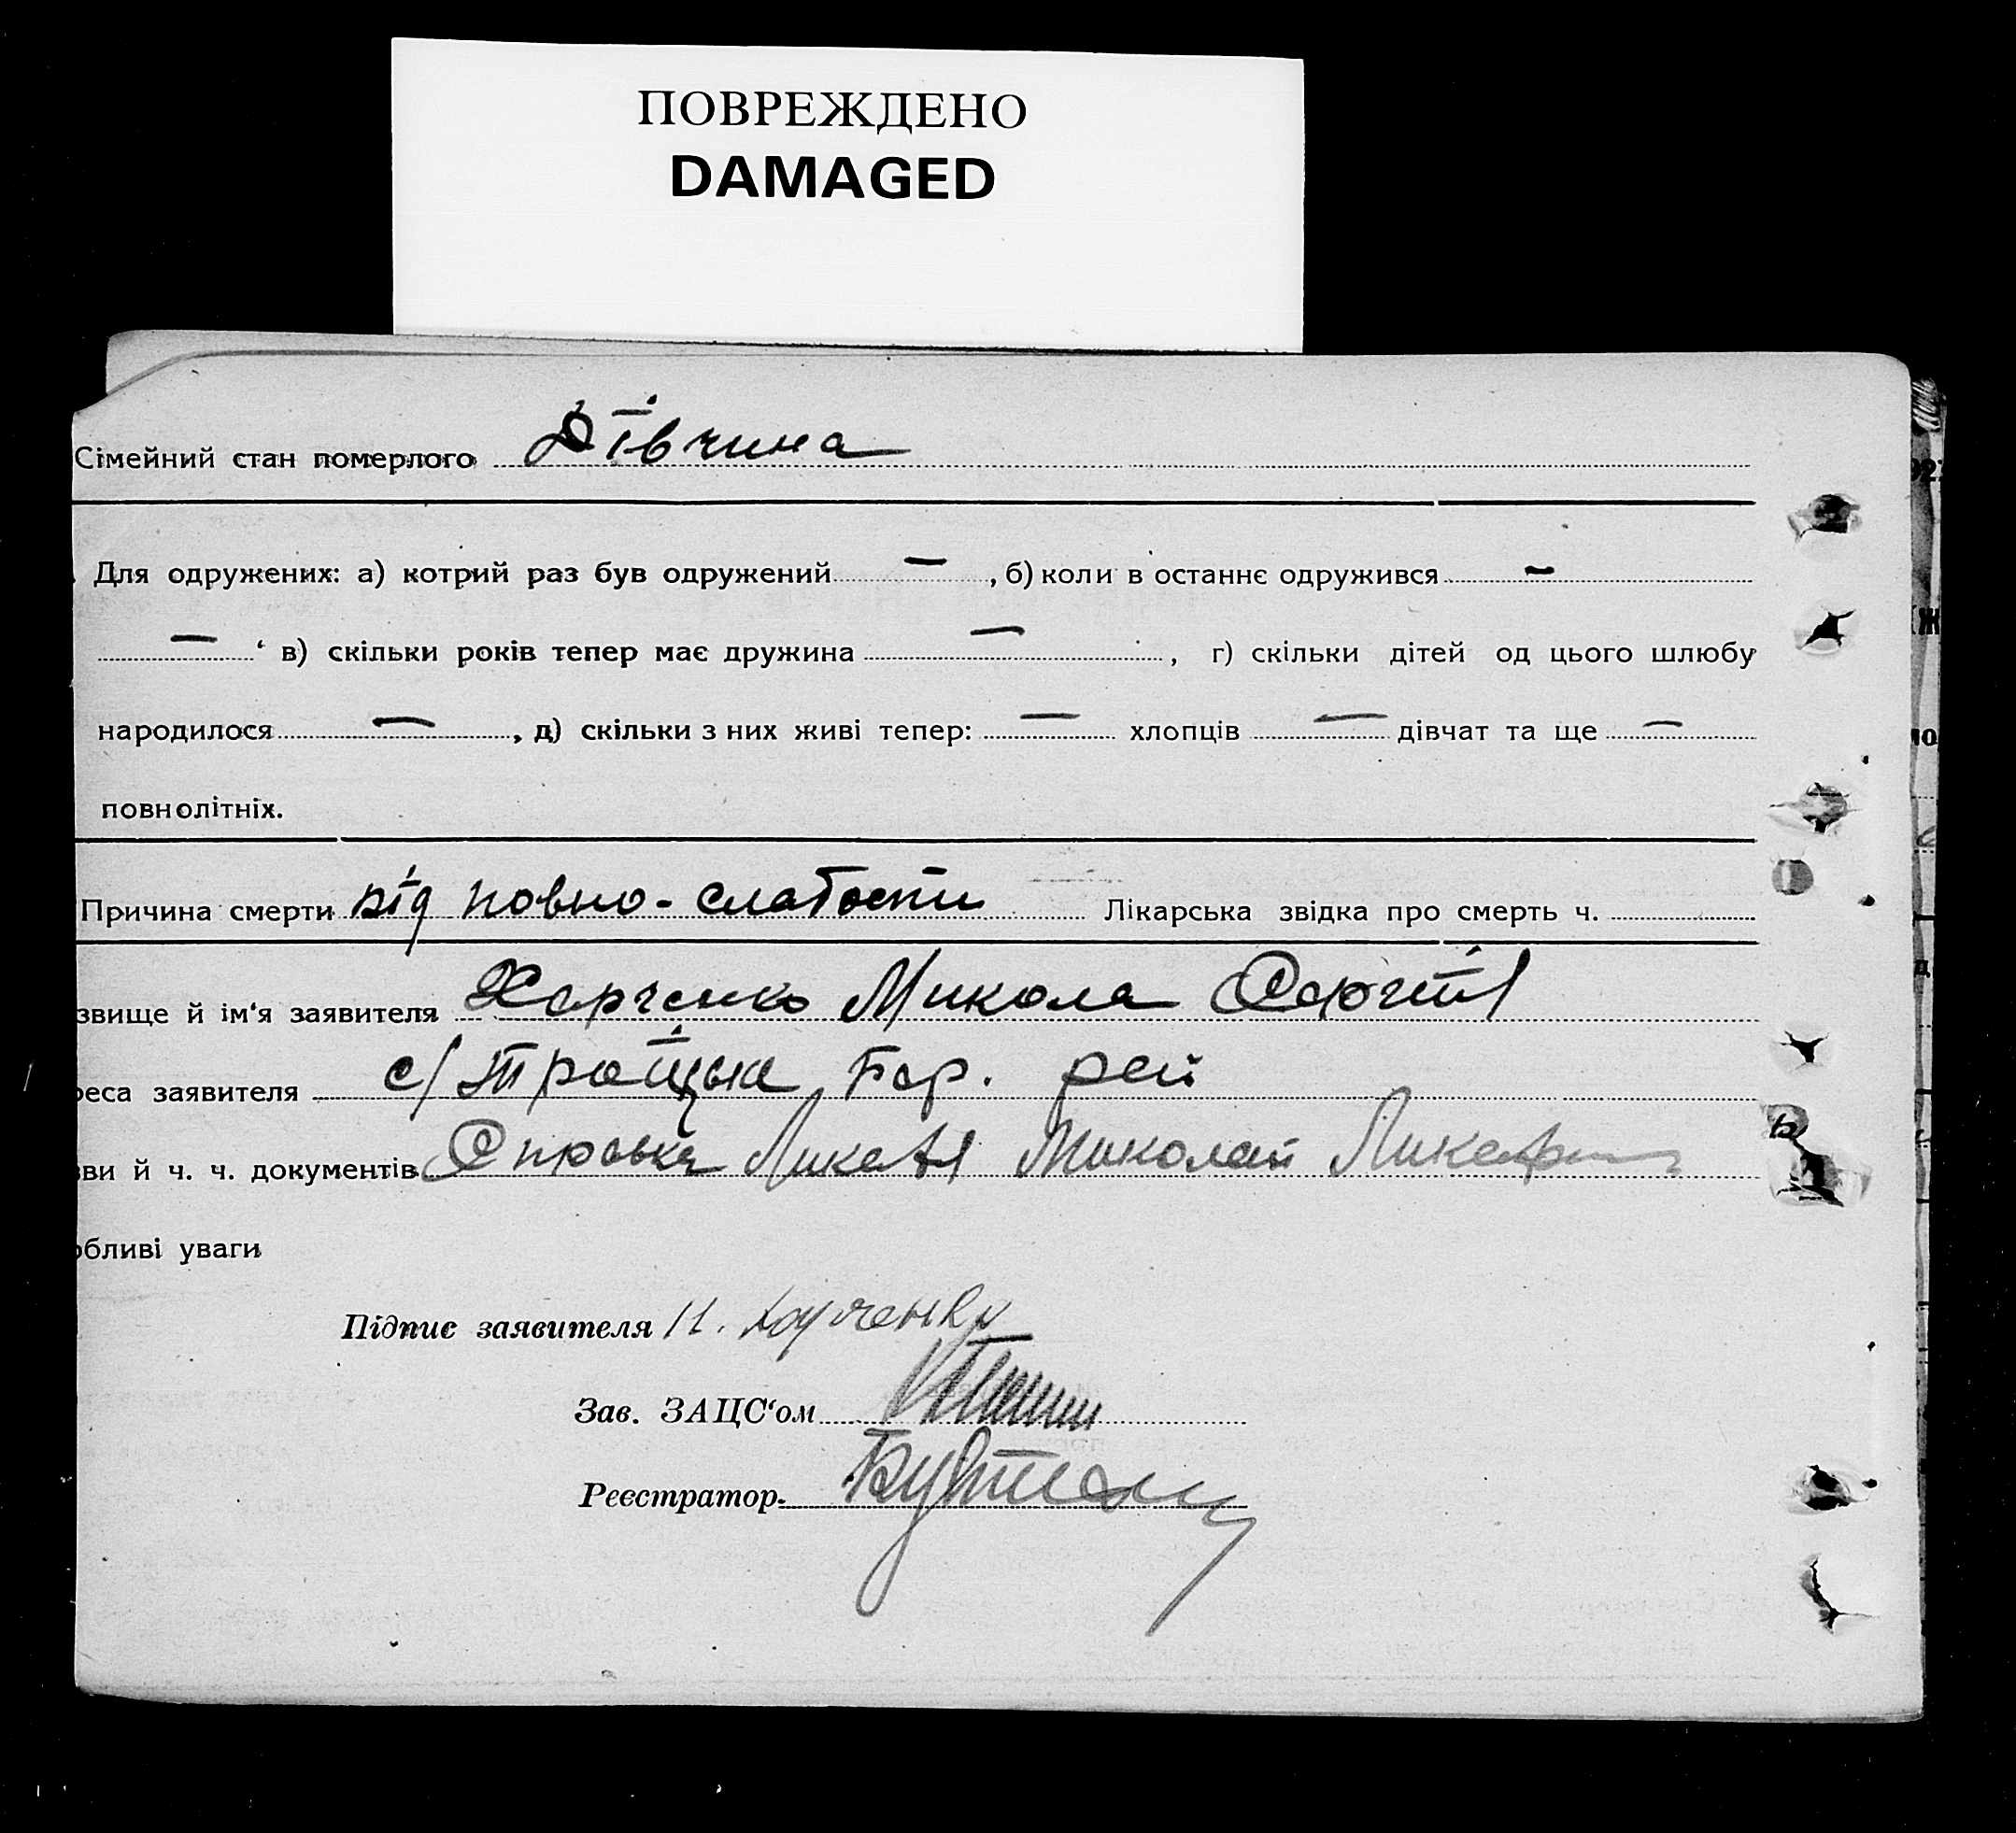 ПОВРЕЖДЕНО
DAMAGED
Сімейний стан померлого Дівчина
Для одружених: а) котрий раз був одружений — , б) коли в останнє одружився —
— ‘ в) скільки років тепер має дружина — , г) скільки дітей од цього шлюбу
народилося — , д) скільки з них живі тепер: — хлопців — дівчат та ще —
повнолітніх.
Причина смерти від повно-слабости Лікарська звідка про смерть ч.
звище й ім‘я заявителя Харченко Микола
реса заявителя с/ район
зви й ч. ч. документів Справка Миколай
обливі уваги
Підпис заявителя Н. Харченко
Зав. ЗАЦС‘ом
Реєстратор